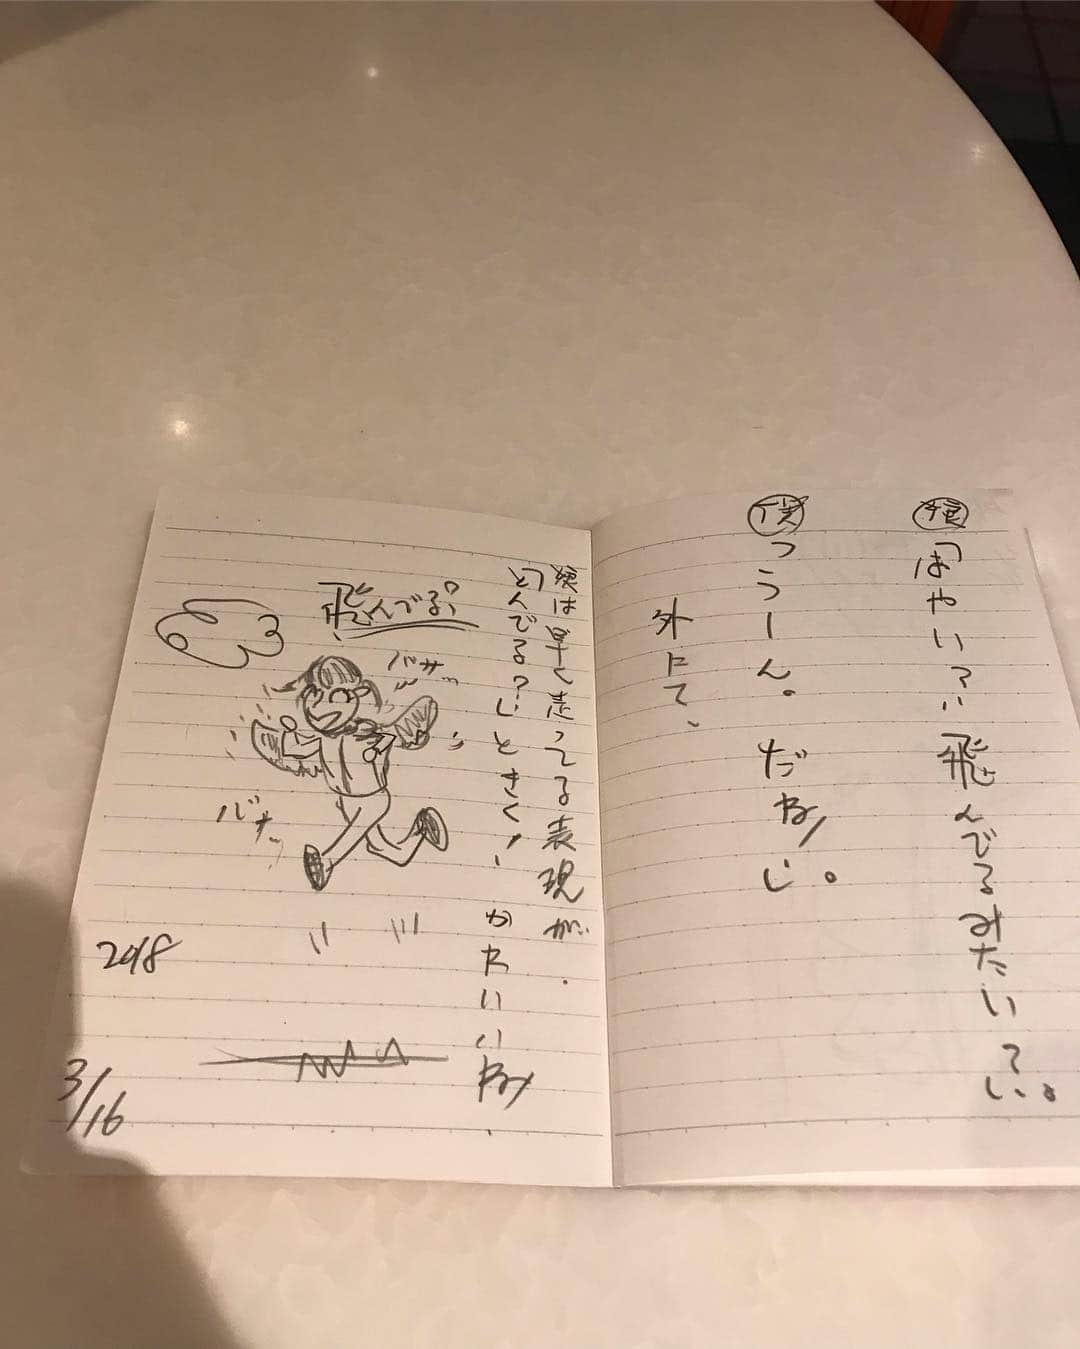 娘「はやい？飛んでるみたい？」。
僕「うーん。だね!」。
外にて、
娘は早く走ってる表現が.
「とんでる?」ときく! かわいいね
飛んでる?
バサッ
バサッ
2018
3/16